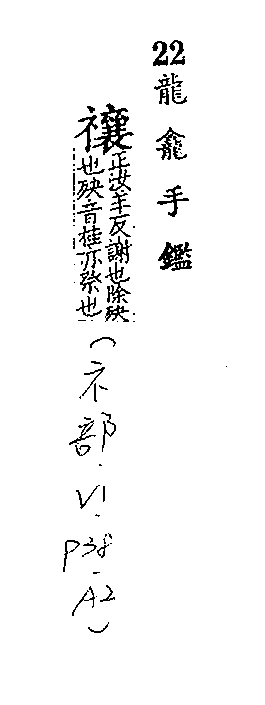 22 龍龕手鑑
禳
正汝羊反謝也除殃
也殃音桂亦祭也
(示部.VI.P38.A2)